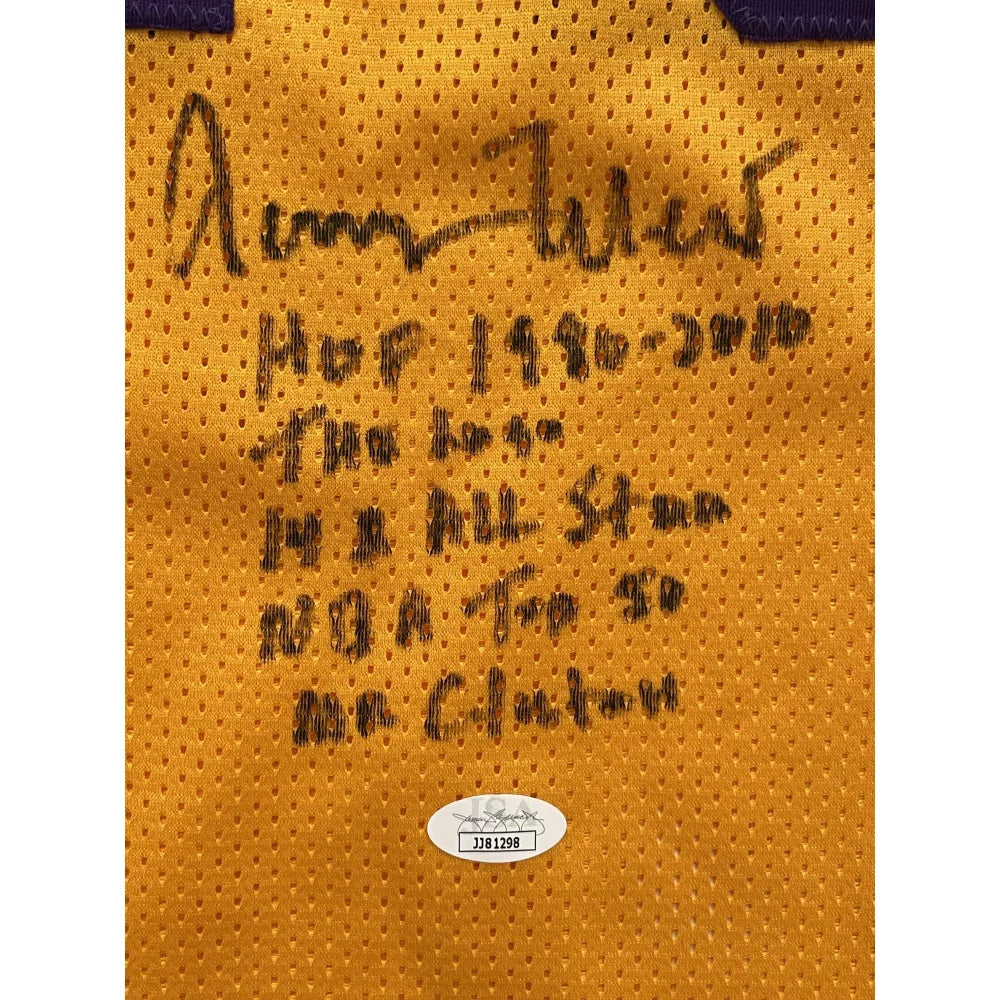 Jerry West
HOF 1980-2010
The Logo
14 X ALL Star
NBA Top 50
Mr Clutch
JSA
JJ81298